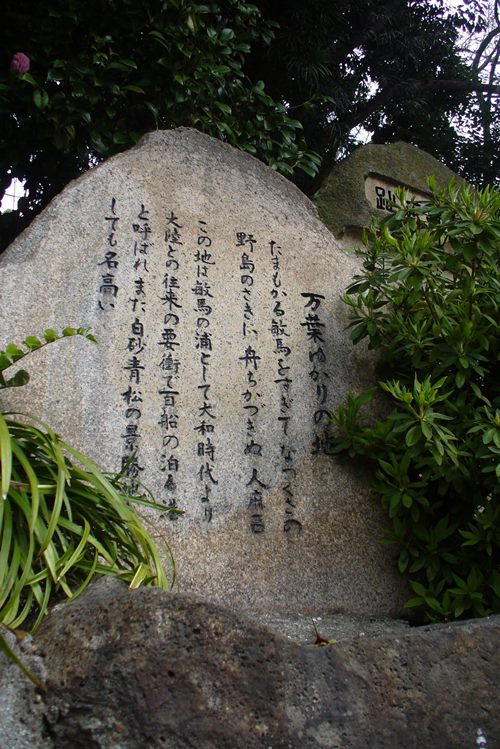 万葉ゆかりの地
たまもかる敏馬をすぎてなつくさの
野島のさきに舟ちかつきぬ 人麻呂
この地は敏馬の浦として大和時代より
大陸との往来の要衝で百船の泊る
と呼ばれまた白砂青松の景勝地
しても名高い